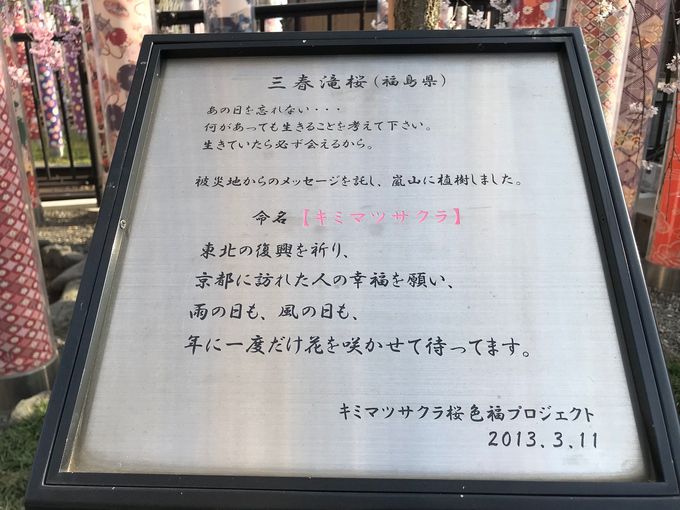 三春滝桜(福島県)
あの日を忘れない・・・
何があっても生きることを考えて下さい。
生きていたら必ず会えるから。
被災地からのメッセージを託し、嵐山に植樹しました。
命名【キミマツサクラ】
東北の復興を祈り、
京都に訪れた人の幸福を願い、
雨の日も、風の日も、
年に一度だけ花を咲かせて待ってます。
キミマツサクラ桜色福プロジェクト
2013.3.11